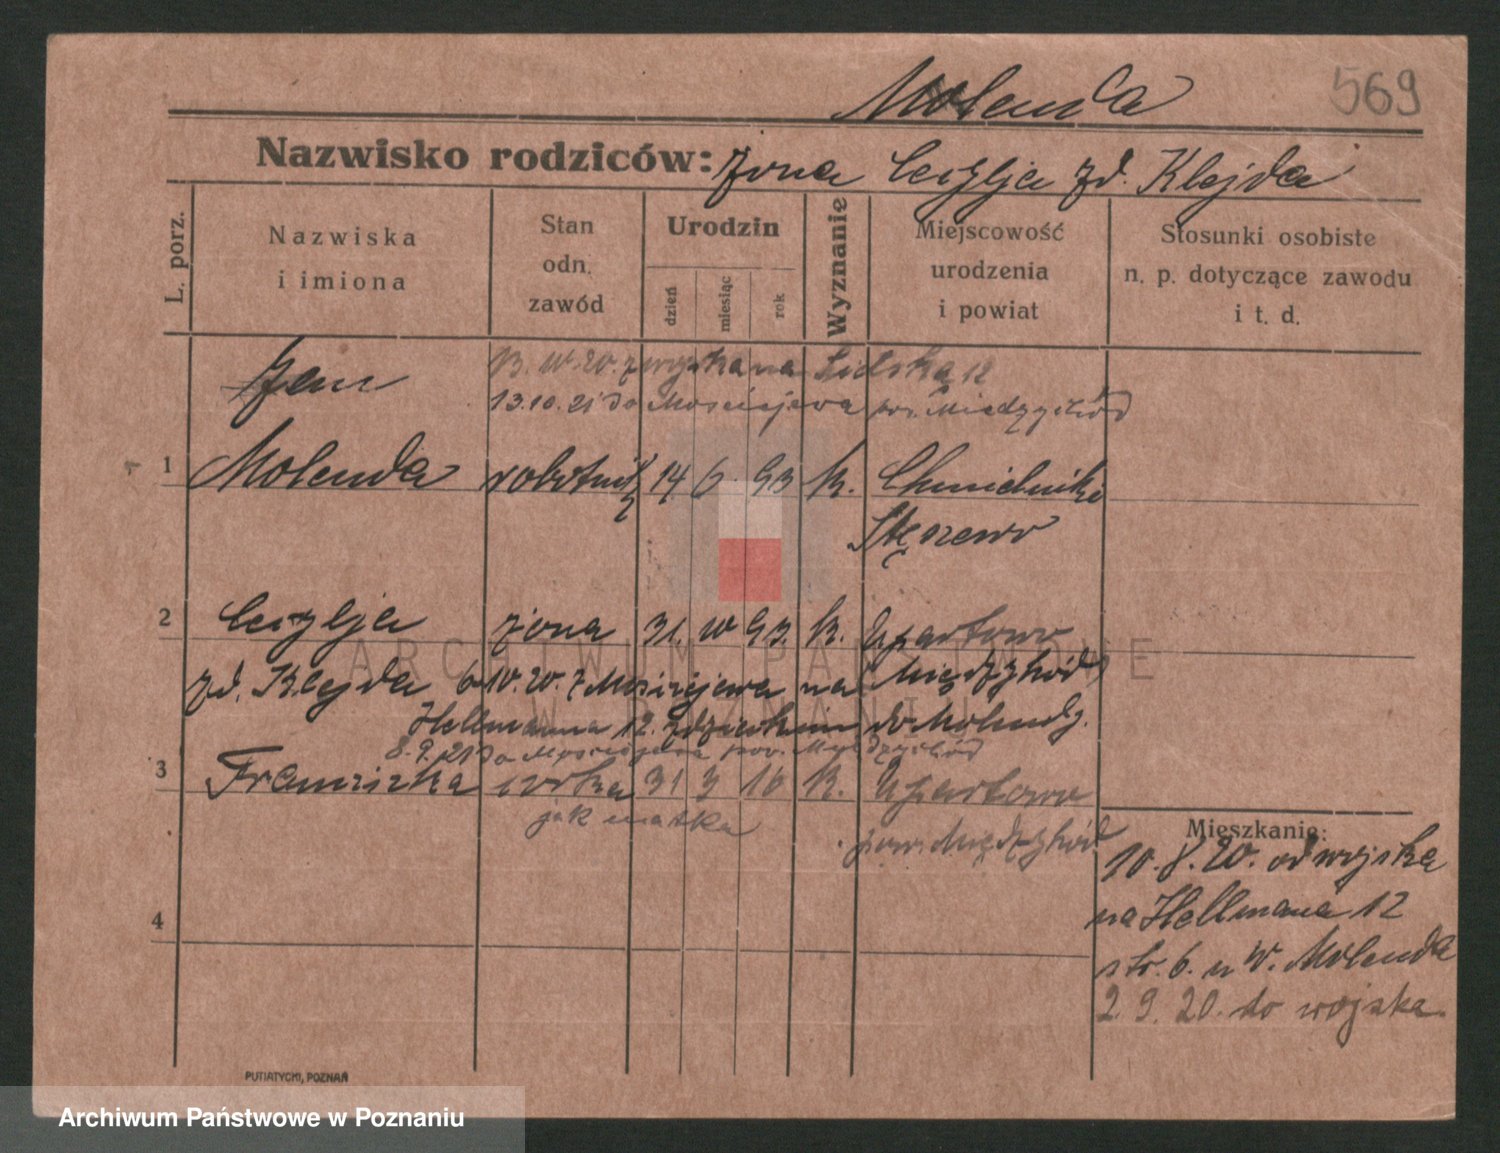 569
Molenda
Nazwisko rodziców: żona Cecylja zd. Klejda
L. porz.
Nazwiska i imiona
Stan odn. zawód
Urodzin
dzień
miesiąc
rok
Wyznanie
Miejscowość urodzenia i powiat
Stosunki osobiste n. p. dotyczące zawodu i t. d.
Jan
z wojska na 12
13.10.21 do Mościejewa pow. Międzychód
1 Molenda robotnik 14 6 93 k. Chmielniki
Stęszewo
2 Cecylja żona 31. 10 93. k. Upartowo
zd. Klejda 6 10. 20. z Mościejewa na Międzychód
Hellmanna 12. z dzieckiem do Molendy.
8.9.21 do Mościejewa pow. Międzychód
3 Franciszka córka 31 3 16 k. Upartowo
jak matka
pow. Międzychód
Mieszkanie:
10. 8. 20. od wojska
na Hellmana 12
str. 6. u W. Molenda
2. 9. 20. do wojska.
4
PUTIATYCKI, POZNAŃ
ARCHIWUM PAŃSTWOWE
W POZNANIU
Archiwum Państwowe w Poznaniu